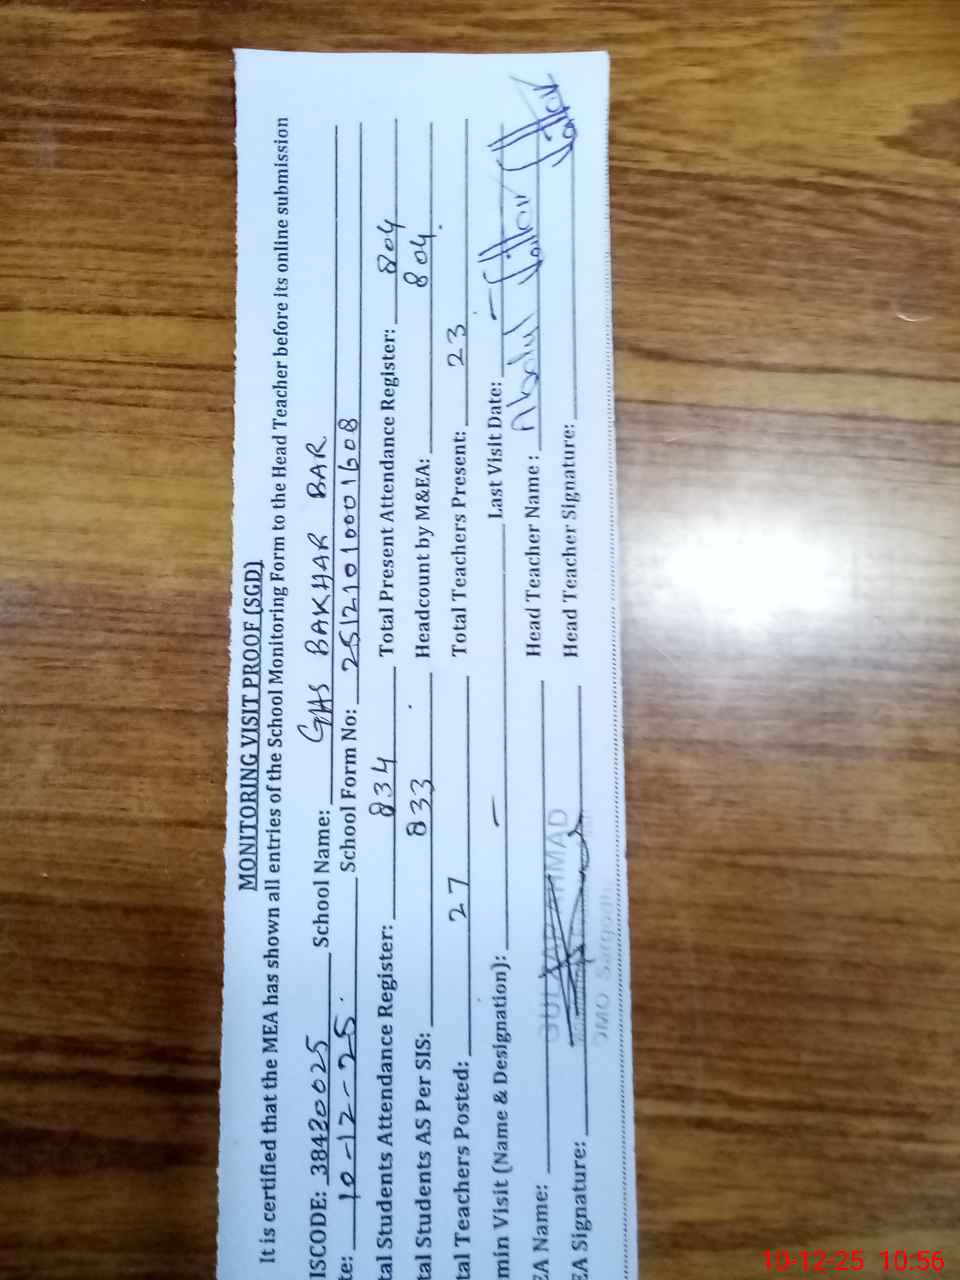 MONITORING VISIT PROOF (SGD)
It is certified that the MEA has shown all entries of the School Monitoring Form to the Head Teacher before its online submission
ISCODE: 38420025 School Name: GHS BAKHAR BAR
te: 10-12-25. School Form No: 25121010001608
tal Students Attendance Register: 834 Total Present Attendance Register: 804
tal Students AS Per SIS: 833 Headcount by M&EA: 804
tal Teachers Posted: 27 Total Teachers Present: 23
min Visit (Name & Designation): — Last Visit Date: —
EA Name: AHMAD Head Teacher Name : Abdul Sattar
EA Signature: Head Teacher Signature:
DMO Sargodh
10-12-25 10:56